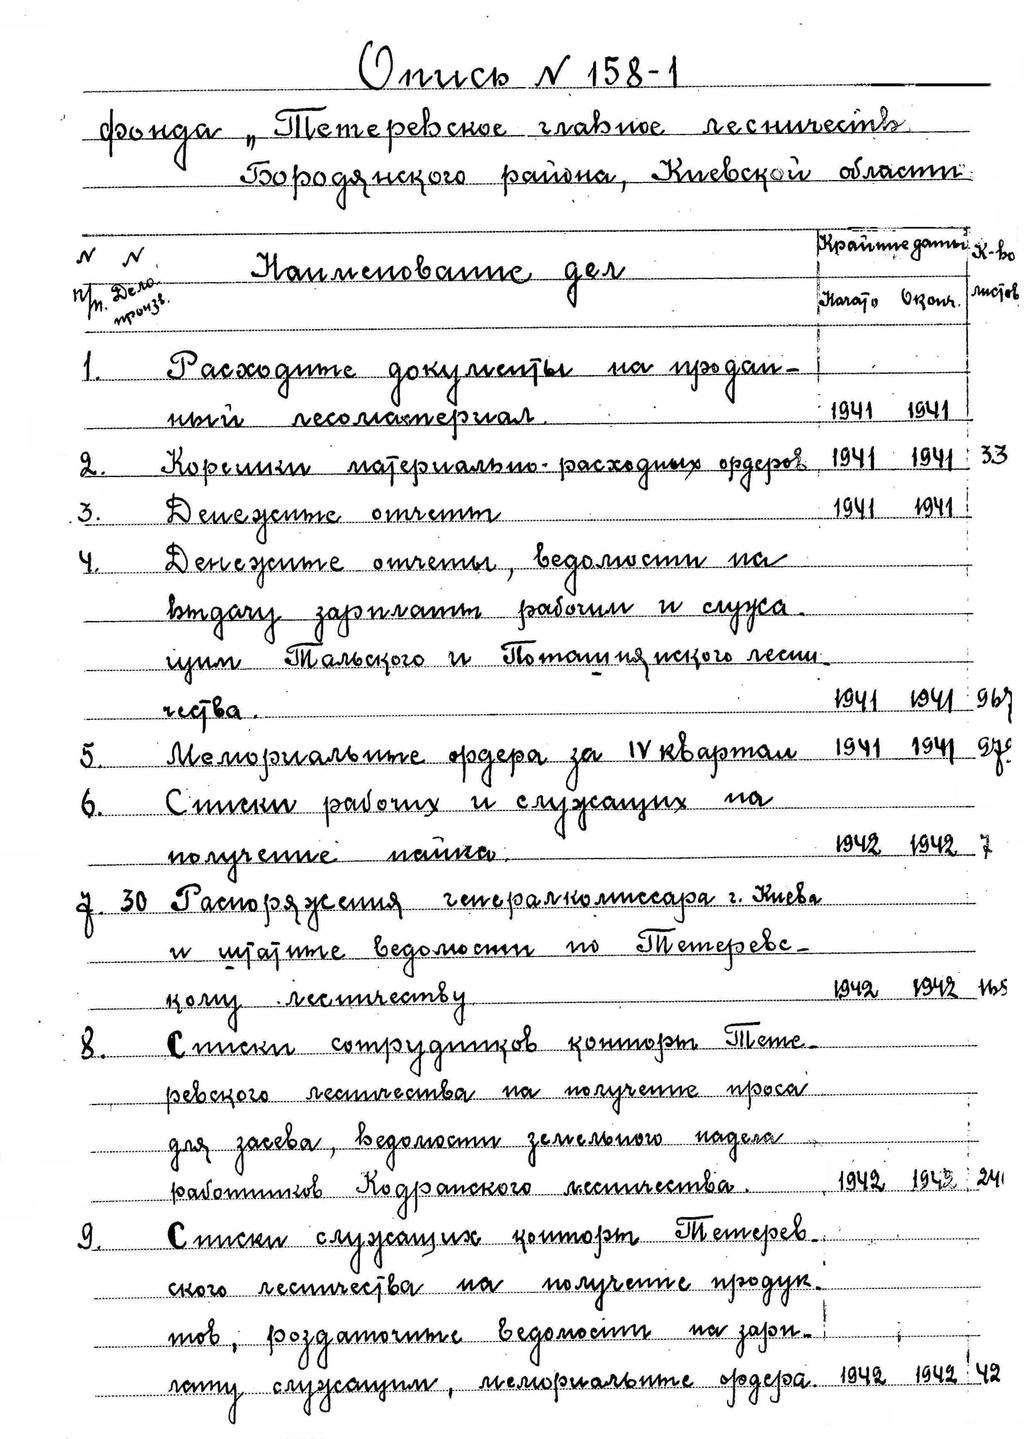 Опись № 158-1
фонда „Тетеревское главное лесничеств
Бородянского района, Киевской области
№ п/п. № Дело произв. Наименование дел Крайние даты Начато Оконч. К-во листов
1. Расходные документы на продан-
ный лесоматериал. 1941 1941
2. Корешки материально-расходных ордеров 1941 1941 33
3. Денежные отчеты 1941 1941
4. Денежные отчеты, ведомости на
выдачу зарплаты рабочим и служа-
щим Тальского и Поташнянского лесни-
чества. 1941 1941 967
5. Мемориальные ордера за IV квартал 1941 1941
6. Списки рабочих и служащих на
получение пайка. 1942 1942 7
7. 30 Распоряжения генералкомиссара г. Киева
и штатные ведомости по Тетеревс-
кому лесничеству 1942 1942
8. Списки сотрудников конторы Тете-
ревского лесничества на получение проса
для засева, ведомости земельного надела
работников Кодранского лесничества. 1942 1942
9. Списки служащих конторы Тетерев-
ского лесничества на получение продук-
тов, роздаточные ведомости на зарп-
лату служащим, мемориальные ордера. 1942 1942 42